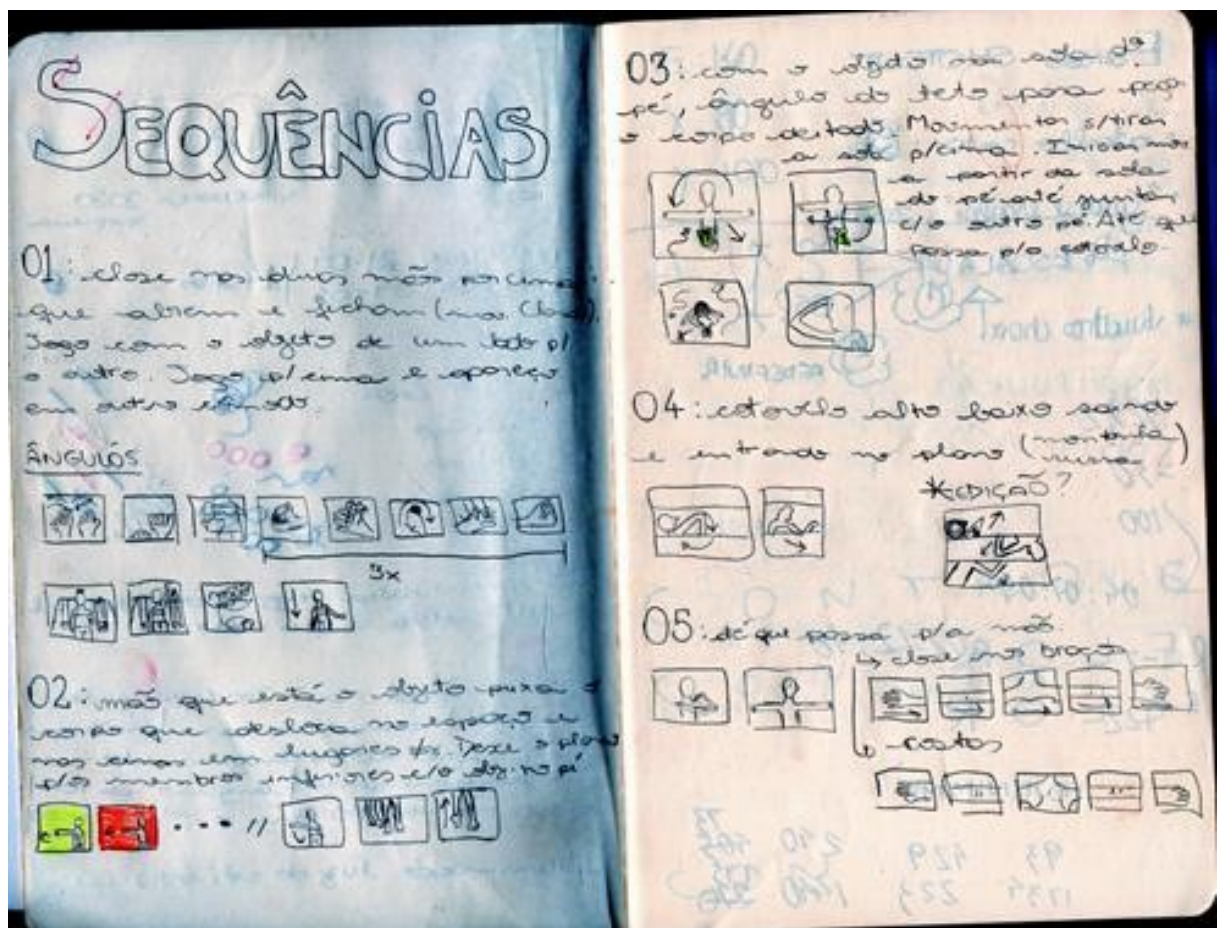 SEQUÊNCIAS
01: close nas duas mãos por cima
que abrem e fecham (nos
Jogo com o objeto de um lado p/
o outro. Jogo p/ cima e apareço
em outro cômodo.
ÂNGULOS
3x
02: mão que está o objeto puxa o
corpo que desloca no espaço e
em lugares Desce o plano
p/os membros inferiores c/o obj. no pé
03: com o objeto na sola do
pé, ângulo do teto para pegar
o corpo deitado. Movimentos s/tirar
a sola p/cima. Iniciamos
a partir da sola
do pé até juntar
c/o outro pé. Até que
passa p/o cotovelo.
04: cotovelo alto baixo saindo
e entrando no plano (montanha
russa)
*EDIÇÃO?
05: até que passa p/a mão
↳ close nos braços
↳ costas